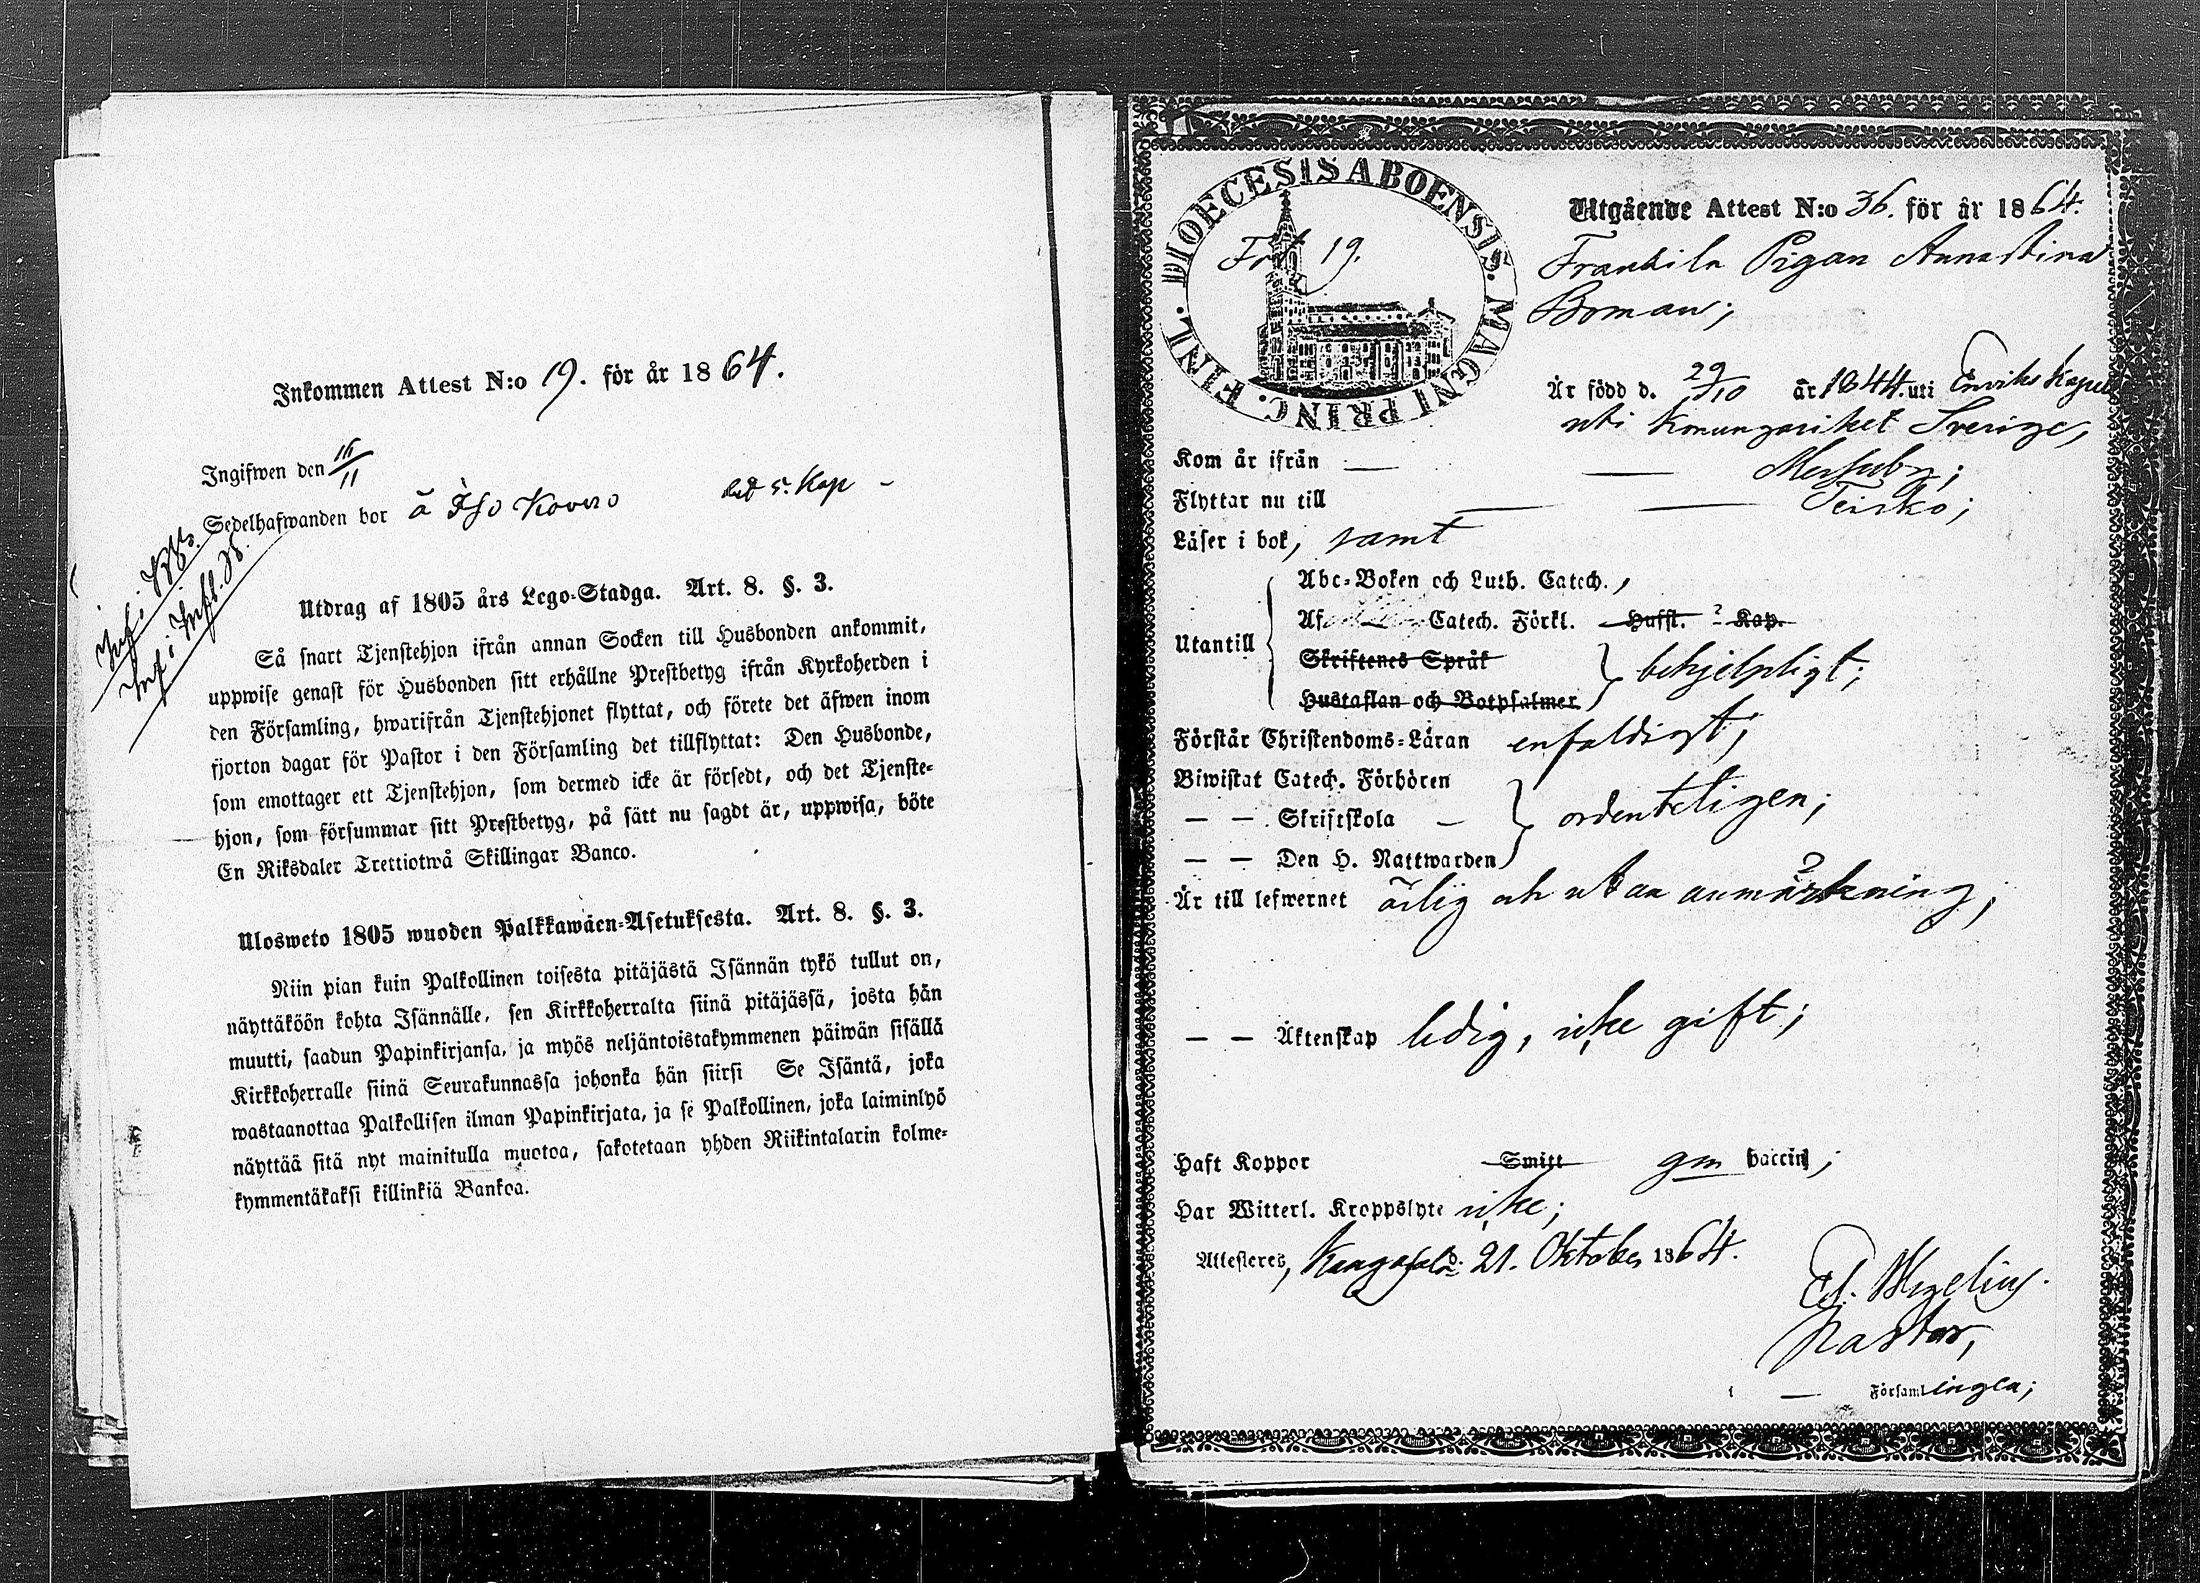 Inkommen Attest N:o 19. för år 1864.
Ingifwen den 16/11
Sedelhafwanden bor å Iso Kovero 5. Kap
Utdrag af 1805 års Lego-Stadga. Art. 8. §. 3.
Så snart Tjenstehjon ifrån annan Socken till Husbonden ankommit,
uppwise genast för Husbonden sitt erhållne Prestbetyg ifrån Kyrkoherden i
den Församling, hwarifrån Tjenstehjonet flyttat, och förete det äfwen inom
fjorton dagar för Pastor i den Församling det tillflyttat: Den Husbonde,
som emottager ett Tjenstehjon, som dermed icke är försedt, och det Tjenste-
hjon, som försummar sitt Prestbetyg, på sätt nu sagdt är, uppwisa, böte
En Riksdaler Trettiotwå Skillingar Banco.
Ulosweto 1805 wuoden Palkkawäen-Asetuksesta. Art. 8. §. 3.
Niin pian kuin Palkollinen toisesta pitäjästä Isännän tykö tullut on,
näyttäköön kohta Isännälle, sen Kirkkoherralta siinä pitäjässä, josta hän
muutti, saadun Papinkirjansa, ja myös neljäntoistakymmenen päiwän sisällä
Kirkkoherralle siinä Seurakunnassa johonka hän siirsi Se Isäntä, joka
wastaanottaa Palkollisen ilman Papinkirjata, ja se Palkollinen, joka laiminlyö
näyttää sitä nyt mainitulla muotoa, sakotetaan yhden Riikintalarin kolme-
kymmentäkaksi killinkiä Bankoa.
DIOECESIS ABOENSIS. MAGNI PRINC. FINL.
19.
Utgående Attest N:o 36. för år 1864.
Frankila Pigan Annastina
Boman;
Är född d. 29/10 år 1844. uti Enviks Kapell
uti Konungariket Sverige,
Kom år ifrån — —
Flyttar nu till — — Teisko;
Läser i bok, samt
Utantill
Abc-Boken och Luth. Catech.,
Af Catech. Förkl. Hufst. 2 Kap.
Skriftenes Språk
Hustaflan och Botpsalmer
behjelpligt;
Förstår Christendoms-Läran enfaldigt;
Biwistat Catech. Förhören
— — Skriftskola — ordenteligen;
— — Den H. Nattwarden
Är till lefwernet ärlig och utan anmärkning;
— — Äktenskap ledig, icke gift;
Haft Koppor Smitt gm vaccin;
Har Witterl. Kroppslyte icke;
Attesteres, Kangasala d. 21. Oktober 1864.
Pastor,
i — Församlingen;